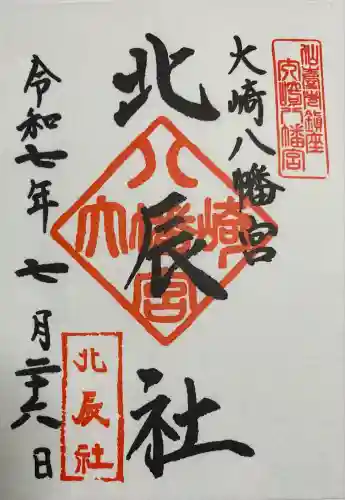 仙臺市鎮座
大崎八幡宮
大崎八幡宮
北辰社
八
大幡崎
宮
令和七年七月二十六日
北辰社